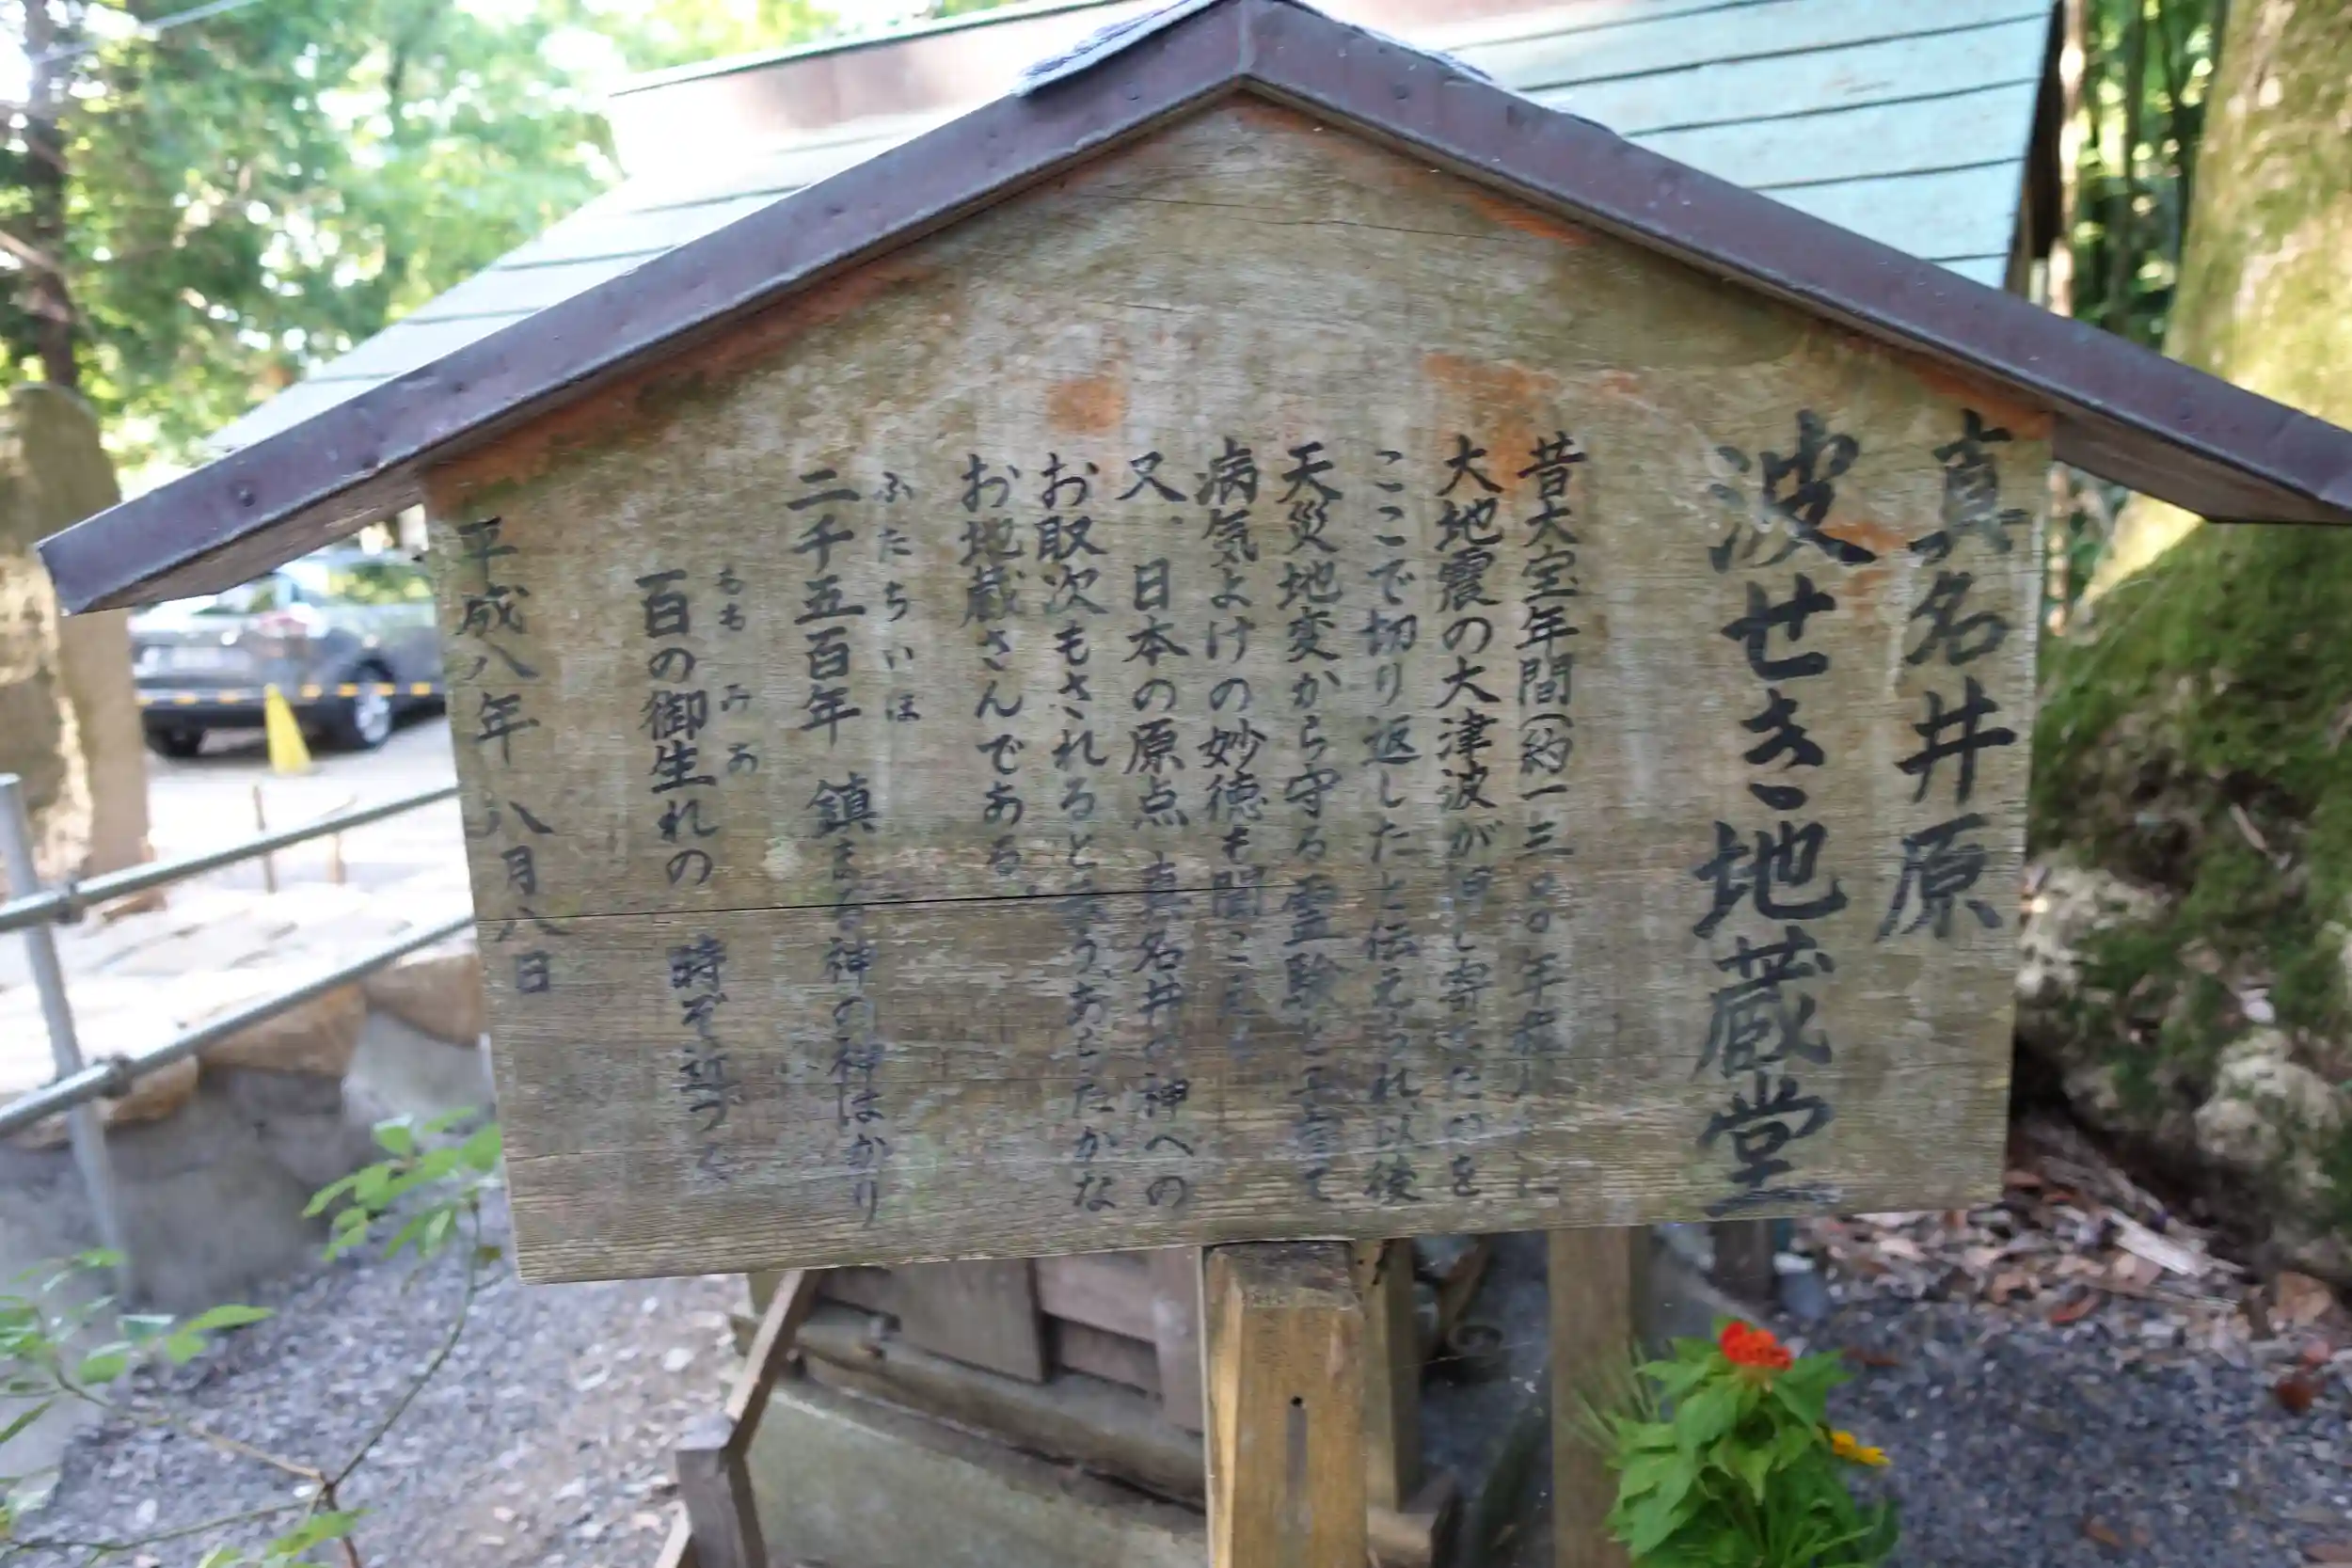 真名井原
波せき地蔵堂
昔大宝年間(約一三〇〇年
大地震の大津波が押し寄せたのを
ここで切り返したと伝えられ、以後
天災地変から守る霊験と
病気よけの妙徳も聞こえ
又、日本の原点 真名井の神への
お取次もされると云うあらたかな
お地蔵さんである。
ふたち いほ
二千五百年 鎮まる神の神はかり
もも みあ
百の御生れの 時ぞ近づく
平成八年 八月八日